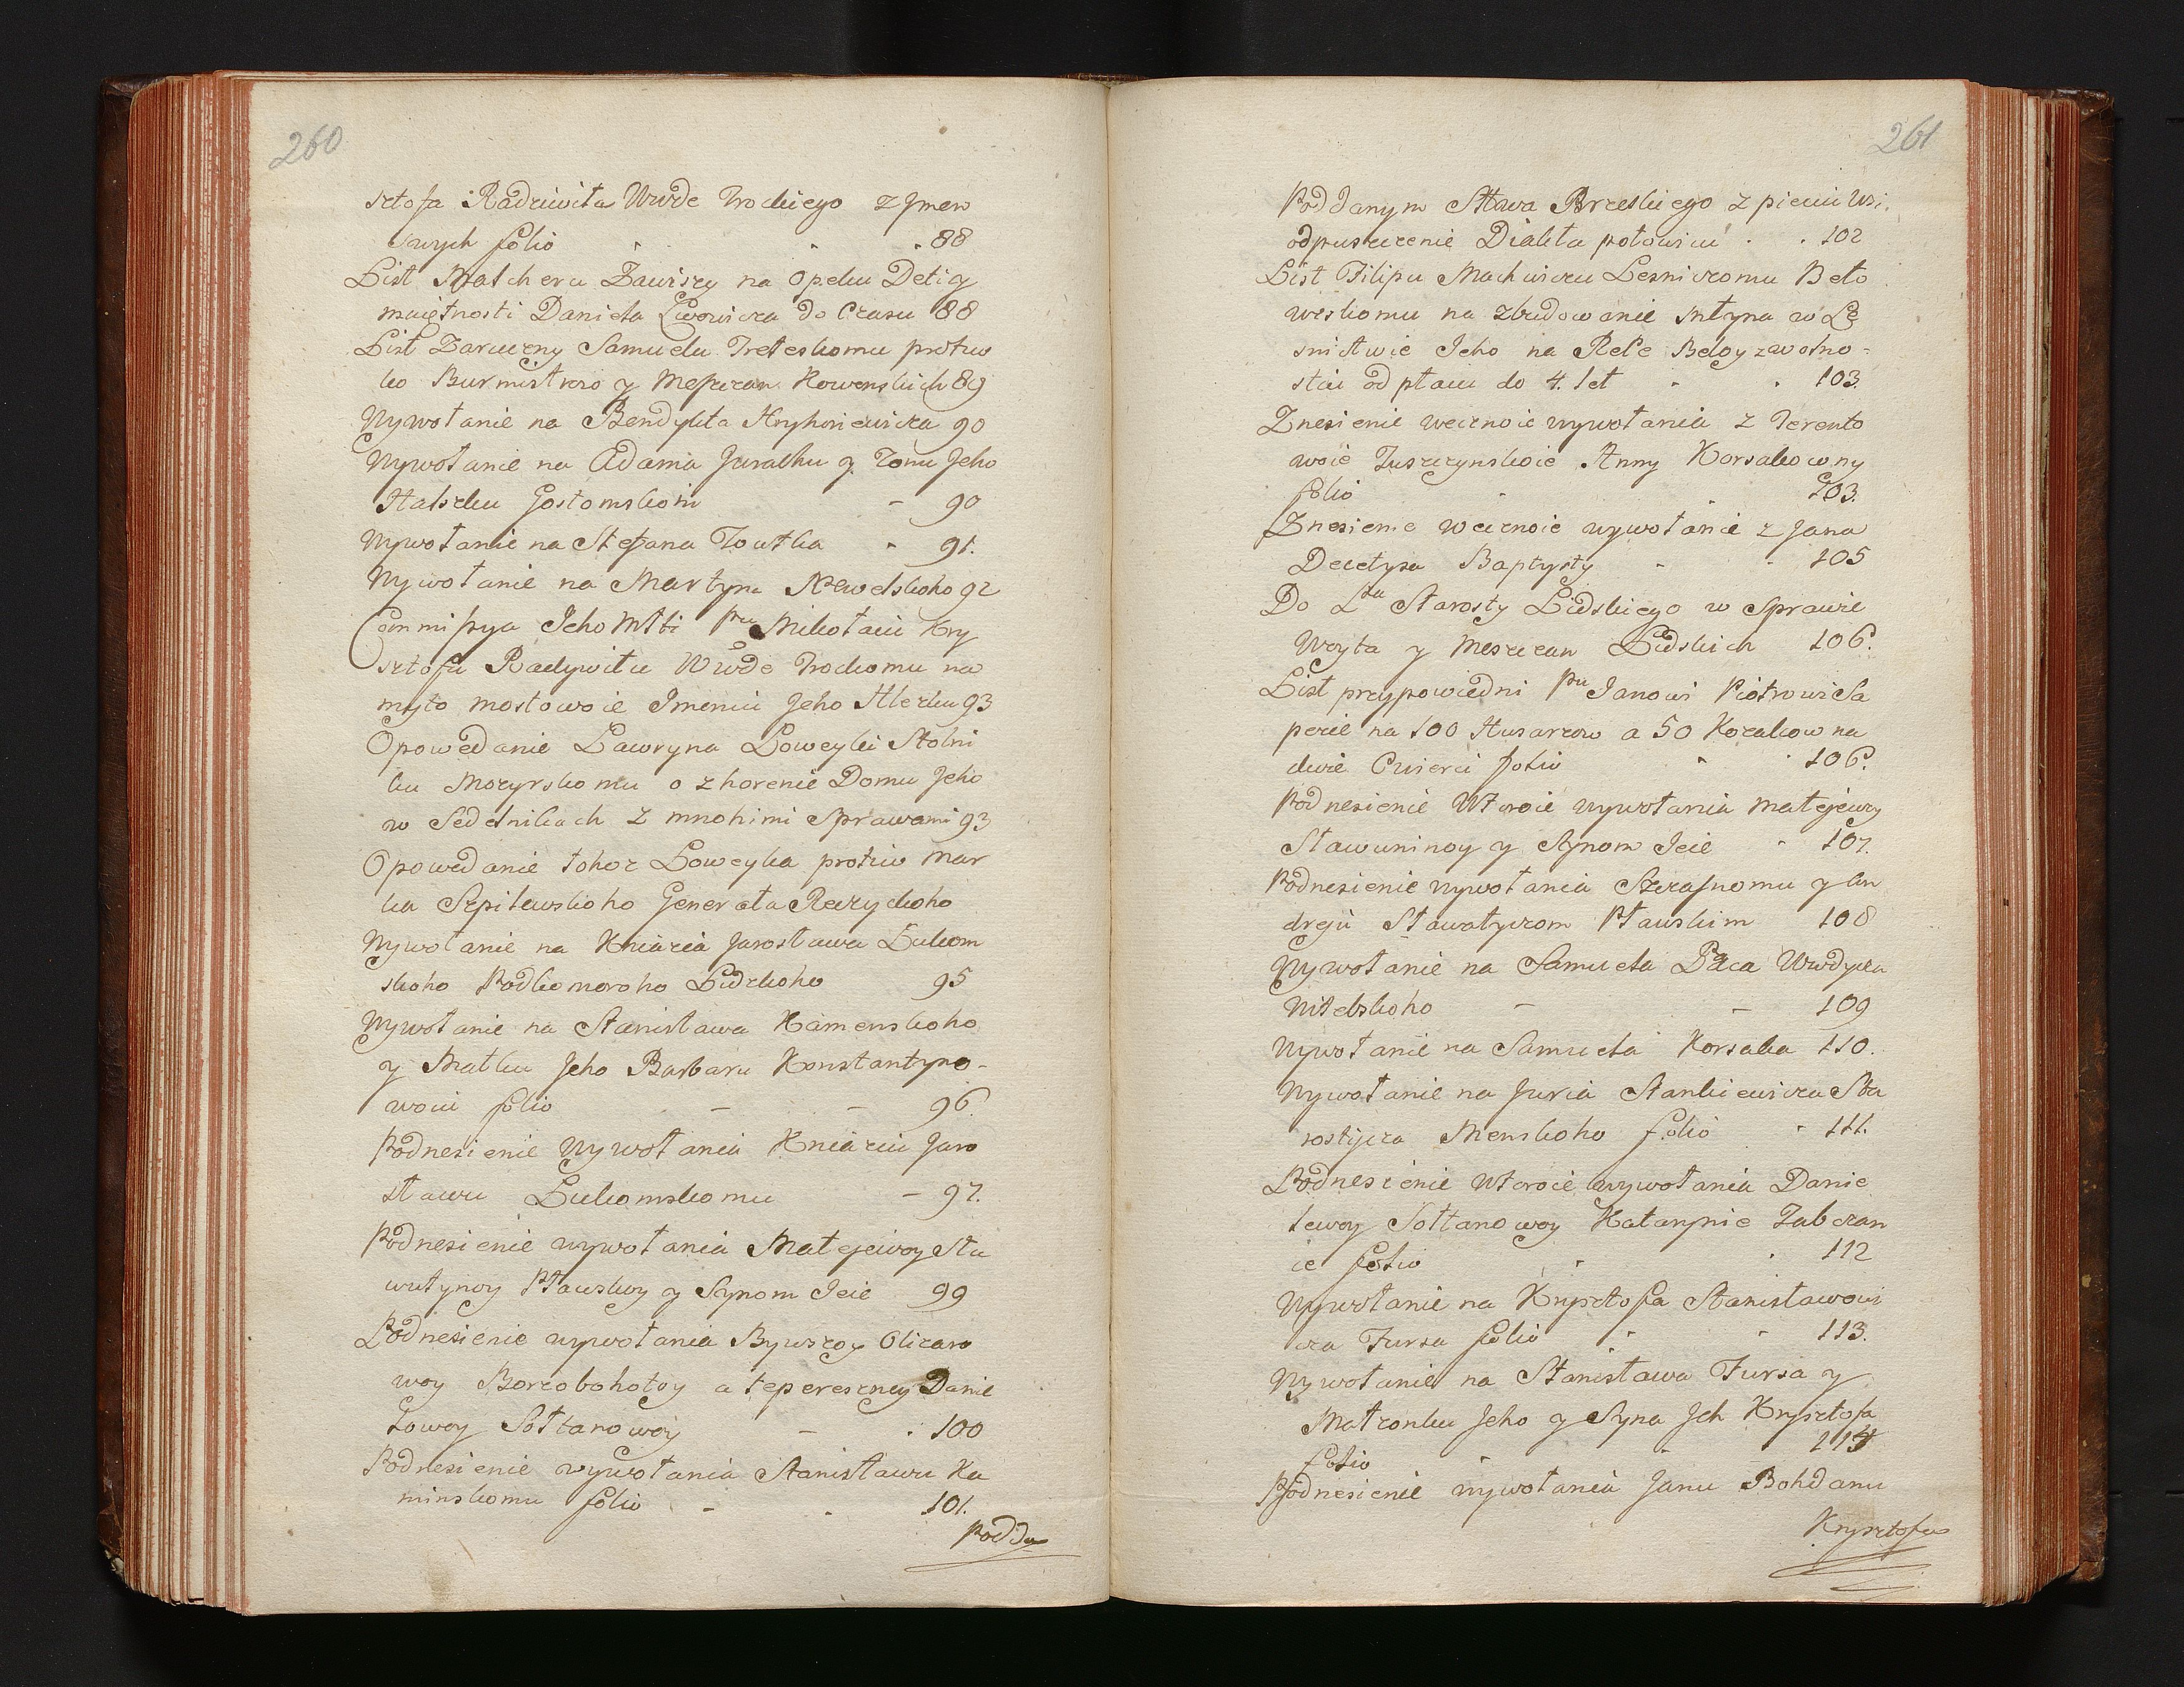 260
sztofa Radziwiła Wwde Trockiego z Jmen
swych folio 88
List Malcheru Zawiszy na Opeku Deti y
maiętnosti Danieła Lwowicza do Czasu 88
List Zaruczny Samuelu Treteskomu protiw
ko Burmistrow y Meszczan Kowenskich 89
Wywołanie na Bendykta Hryhoriewicza 90
Wywołanie na Adama Juralhu y Żonu Jeho
Halszku Gostomskoiu 90
Wywołanie na Stefana Żoułka 91.
Wywołanie na Martyna Newelskoho 92
Commissya Jeho Młti Pnu Mikołaiu Kry
sztofu Radywiłu Wwde Trockomu na
myto mostowoie Jmeniu Jeho Ilerku 93
Opowedanie Lawryna Loweyki Stolni
ku Mozyrskomu o zhorenie Domu Jeho
w Sedelnikach z mnohimi Sprawami 93
Opowedanie tohoz Loweyka protiw Mar
ka Szpilewskoho Generała Reczyckoho
Wywołanie na Kniazia Jarosława Lukom
skoho Podkomoroho Lidzkoho 95
Wywołanie na Stanisława Kamenskoho
y Matku Jeho Barbaru Konstantyno-
woiu folio 96
Podnesienie Wywołania Kniaziu Jaro
sławu Lukomskomu 97.
Podnesienie wywołania Matejewoy Sta
wutynoy Pławskoy y Synom Jeie 99
Podnesienie wywołania Bywszoy Olizaro
woy Borzobohatoy a tepereszney Danie
łowoy Sołtanowoy 100
Podnesienie wywołania Stanisławu Ka
minskomu folio 101.
Podda
261
Poddanym Stawa Brzeskiego z pieciu Wsi.
odpuszczenie Diakła połowicu 102
List Filipu Machwiczu Lesniczomu Beło
weskomu na zbudowanie młyna w Le
snictwie Jeho na Rece Beloy z wolno-
stiu od płacu do 4. let 103.
Znesienie wecznoie wywołania z Terento
woie Tuszczynskoie Anny Korsakowny
folio 103.
Znesienie wecznoie wywołanie z Jana
Decetysa Baptysty 105
Do Lta Starosty Lidskiego w Sprawie
Woyta y Meszczan Lidskich 106.
List przypowiedni Pnu Janowi Piotrowi Sa
pezie na 100 Husarzow a 50 Kozakow na
dwie Cwierci folio 106.
Podnesienie Wtoroie wywołania Matejewy
Stawuninoy y Synom Jeie 107.
Podnesienie wywołania Szczasnomu y An
dreju Stawatyczom Pławskim 108
Wywołanie na Samueła Paca Wwdycza
Witebskoho 109
Wywołanie na Samueła Korsaka 110.
Wywołanie na Juria Stankiewicza Sta
rostycza Menskoho folio 111.
Podnesienie Wtoroie wywołania Danie
lewoy Sołtanowoy Katarynie Zubczan
ce folio 112
Wywołanie na Krysztofa Stanisławowi
cza Fursa folio 113.
Wywołanie na Stanisława Fursa y
Małzonku Jeho y Syna Jch Krysztofa
folio 114
Podnesienie wywołania Janu Bohdanu
Krysztofu